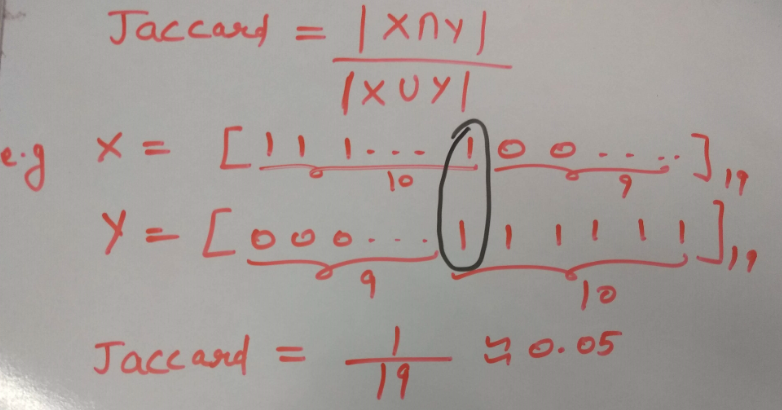 Jaccard = |X∩Y|
|X∪Y|
e.g X = [1 1 1 - - - 1 0 0 - - - - ]19
10 9
Y = [0 0 0 - - - 1 1 1 1 1 1]19
9 10
Jaccard = 1/19 ≈ 0.05